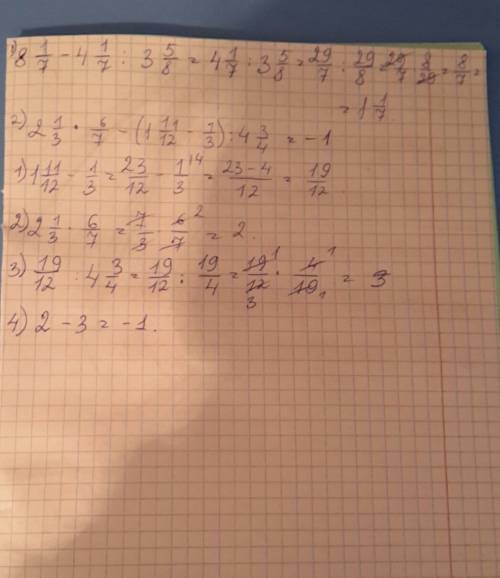 1) 8 1/7 - 4 1/7 : 3 5/8 = 4 1/7 : 3 5/8 = 29/7 : 29/8 = 29/7 8/29 = 8/7 =
= 1 1/7
2) 2 1/3 · 6/7 - (1 11/12 - 1/3) : 4 3/4 = -1
1) 1 11/12 - 1/3 = 23/12 - 1/3 14 = 23-4/12 = 19/12
2) 2 1/3 · 6/7 = 7/3 · 6/7 2 = 2.
3) 19/12 : 4 3/4 = 19/12 : 19/4 = 19 1/12 3 · 4 1/19 1 = 3
4) 2 - 3 = -1.